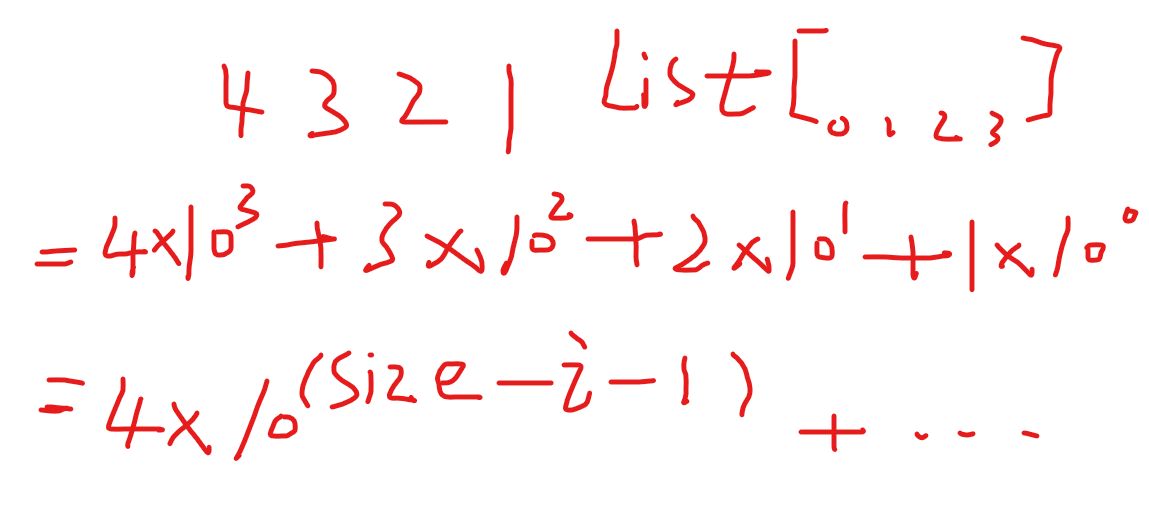 4 3 2 1 List[0,1,2,3]
=4×10³+3×10²+2×10¹+1×10⁰
=4×10^(Size-i-1)+....